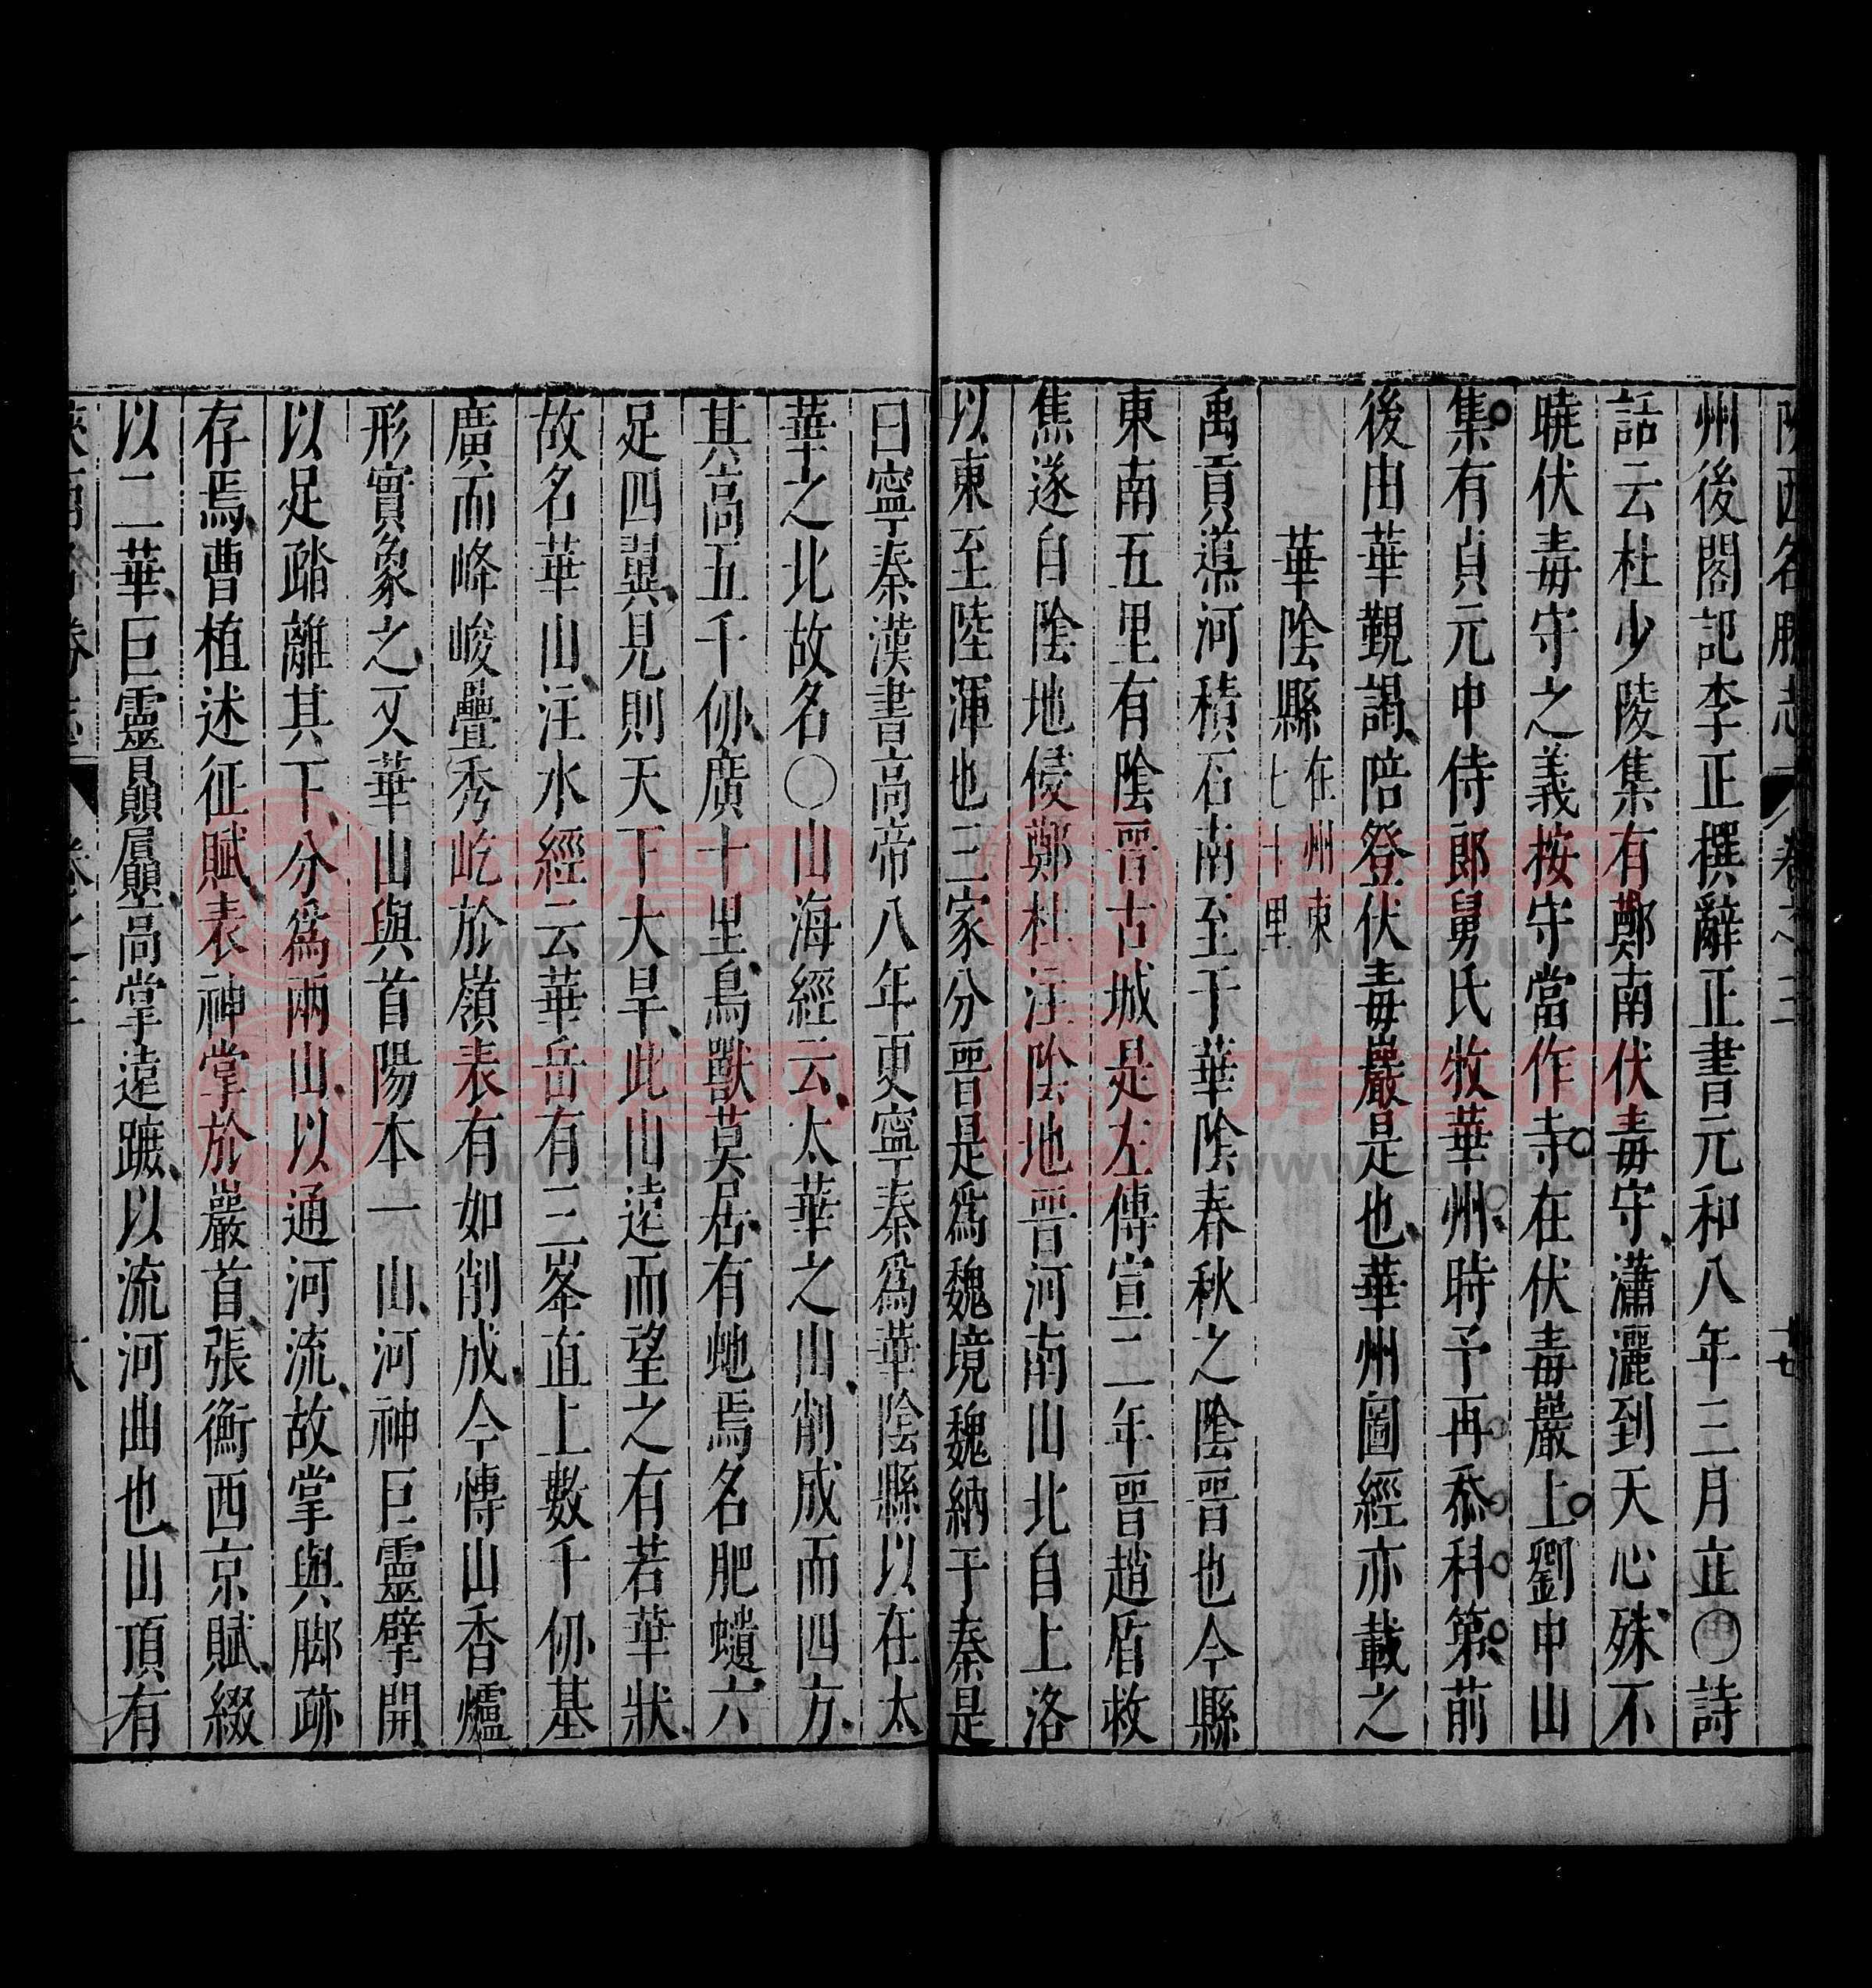 陝西名勝志 卷之三 十七
州後閣記李正撰辭正書元和八年三月立〇詩
話云杜少陵集有鄭南伏毒守瀟灑到天心殊不
曉伏毒守之義按守當作寺在伏毒巖上劉中山
集有貞元中侍郎舅氏牧華州時予再忝科第前
後由華覲謁陪登伏毒巖是也華州圖經亦載之
華陰縣在州東七十里
禹貢導河積石南至于華陰春秋之陰晉也今縣
東南五里有陰晉古城是左傳宣二年晉趙盾救
焦遂自陰地侵鄭杜注陰地晉河南山北自上洛
以東至陸渾也三家分晉是爲魏境魏納于秦是
曰寧秦漢書高帝八年更寧秦爲華陰縣以在太
華之北故名〇山海經云太華之山削成而四方
其高五千仞廣十里鳥獸莫居有虵焉名肥䗤六
足四翼見則天下大旱此山遠而望之有若華狀
故名華山注水經云華岳有三峯直上數千仞基
廣而峰峻疊秀屹於嶺表有如削成今傳山香爐
形實象之又華山與首陽本一山河神巨靈擘開
以足踏離其下分爲兩山以通河流故掌與脚跡
存焉曹植述征賦表神掌於巖首張衡西京賦綴
以二華巨靈贔屭高掌遠蹠以流河曲也山頂有
陝西名勝志 卷之三